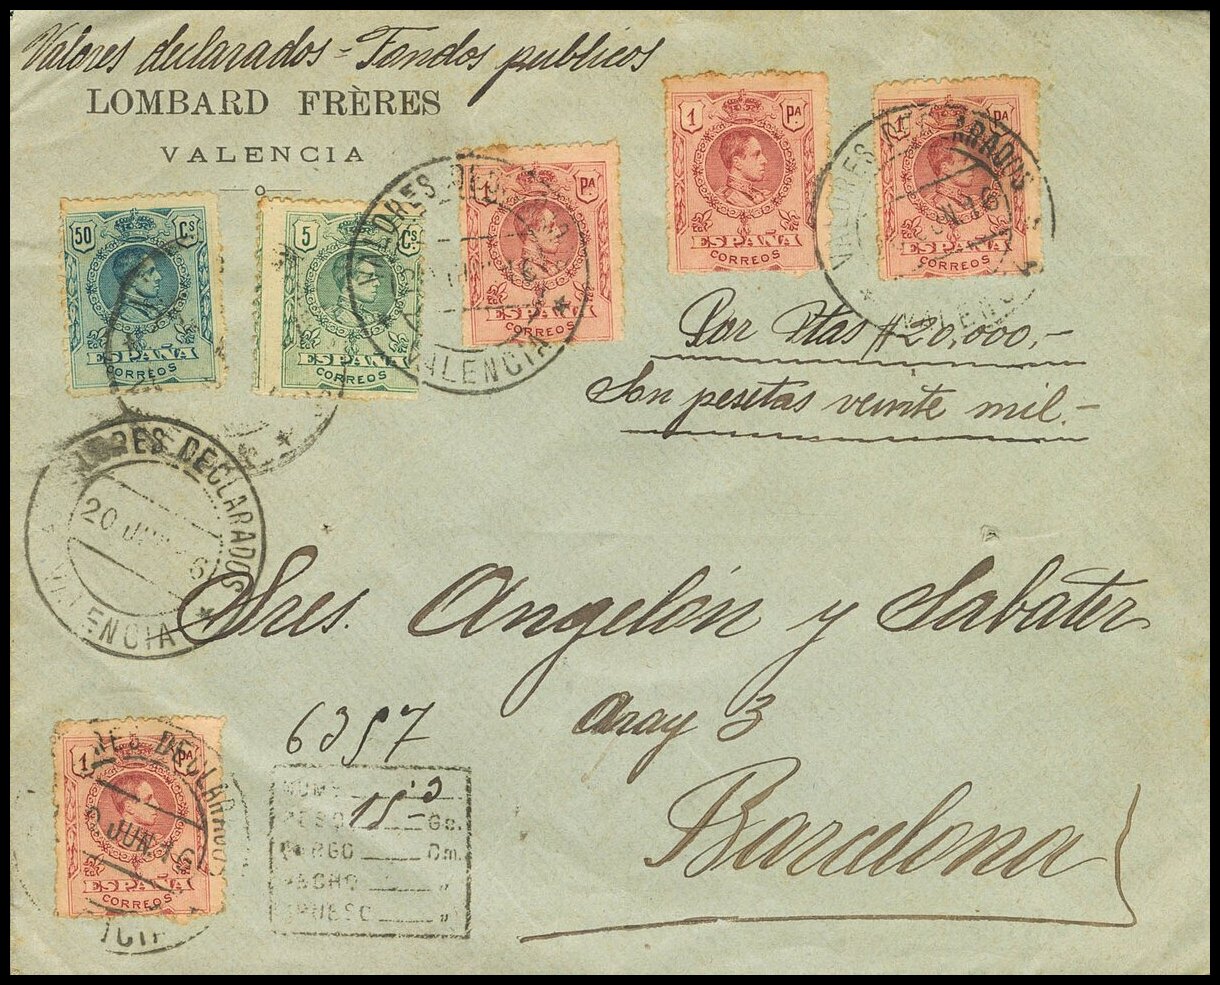 Valores declarados = Fondos publicos
LOMBARD FRÈRES
VALENCIA
1 PA
ESPAÑA
CORREOS
1 PA
ESPAÑA
CORREOS
VALORES DECLARADOS
JUN 16
VALENCIA
1 PA
ESPAÑA
CORREOS
VALORES DECLARADOS
VALENCIA
50 Cs
ESPAÑA
CORREOS
5 Cs
ESPAÑA
CORREOS
Por Ptas #20,000,-
Son pesetas veinte mil.-
VALORES DECLARADOS
20 JUN 16
VALENCIA
Sres. Angelón y Sabáter
Aray 3
Barcelona
6357
NUM
PESO 15 Gs.
LARGO Dm.
ANCHO "
GRUESO "
1 PA
ESPAÑA
CORREOS
VALORES DECLARADOS
JUN 16